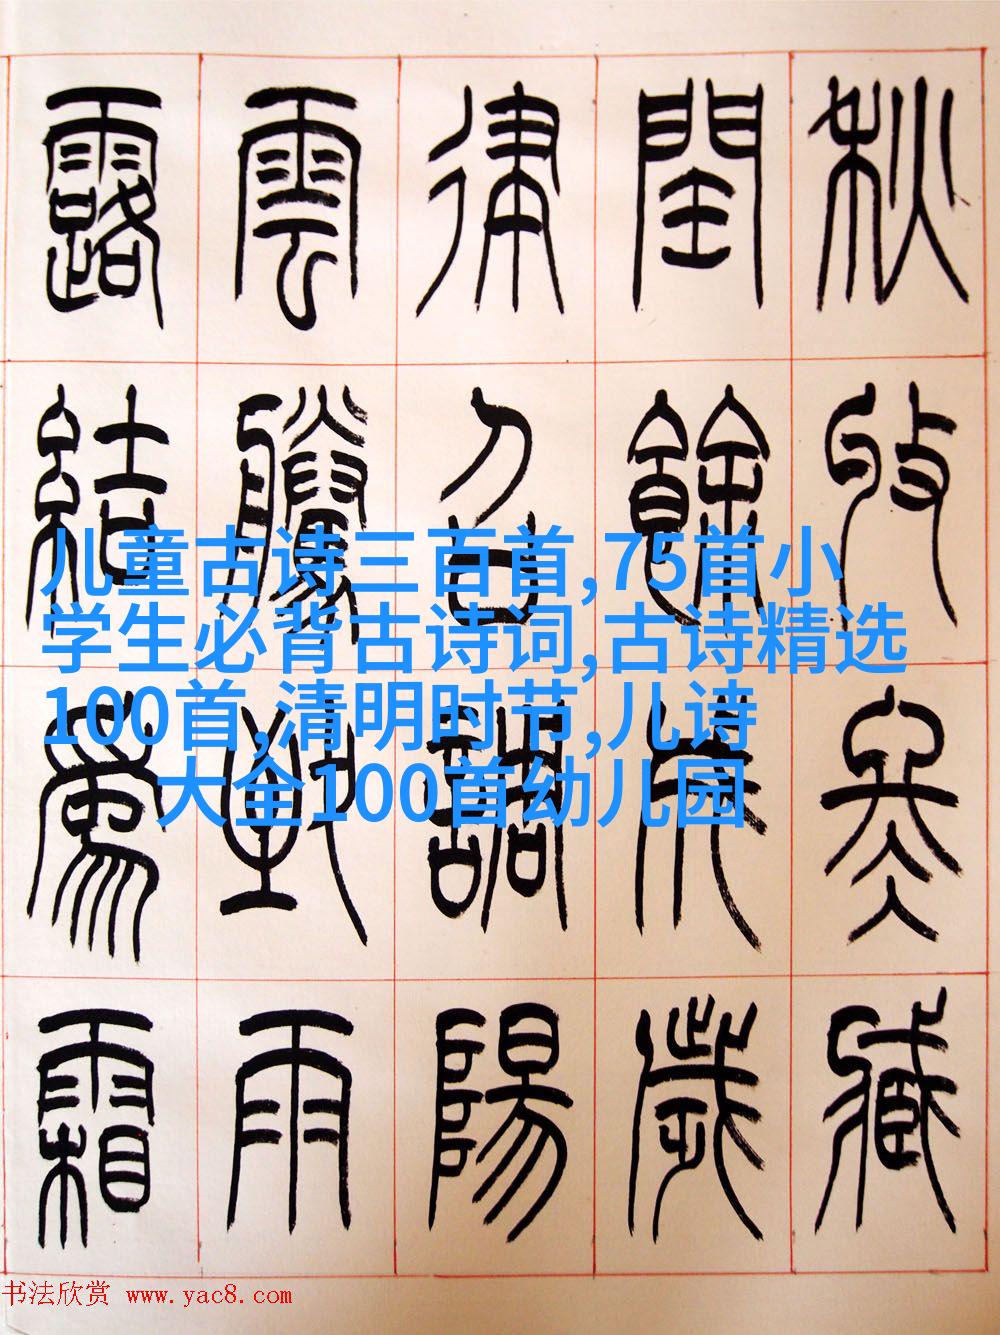 秋收冬藏
閏餘成歲
律召調陽
雲騰致雨
露結爲霜
儿童古诗三百首,75首小
学生必背古诗词,古诗精选
100首,清明时节,儿诗
大全100首幼儿园
书法欣赏 www.yac8.com